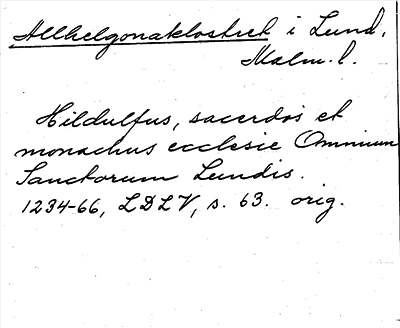 Allhelgonaklostret i Lund,
Malm. l.
Hildulfus, sacerdos et
monachus ecclesie Omnium
Sanctorum Lundis.
1234-66, LDLV, s. 63. orig.